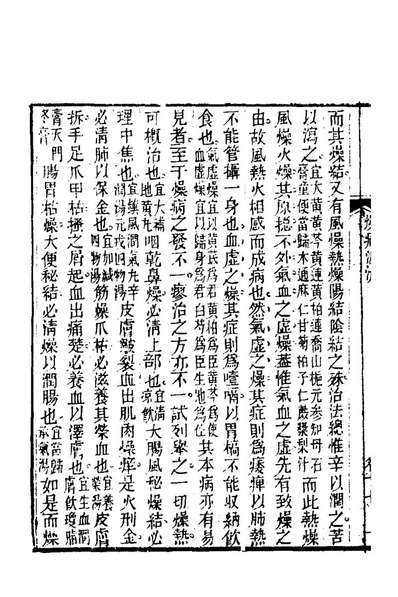 而其燥結又有風燥熱燥陽結陰結之殊治法總惟辛以潤之苦
以瀉之宜大黄黄芩黄連黄柏連喬山梔元参知母石膏童便當歸木通麻仁甘菊柏子仁嚴𣗳梨汁而此熱燥
風燥火燥其原摠不外氣血之虚燥葢惟氣血之虚先有致燥之
由故風熱火相感而成病也然氣虚之燥其症則爲痿痺以肺熱
不能管攝一身也血虚之燥其症則爲噎嗝以胃槁不能收納飲
食也氣虚燥宜以黄芪爲君黄柏爲臣黄芩爲使血虚燥宜以歸身爲君白芍爲臣生地爲佐其本病亦有易
見者至于燥病之發不一療治之方亦不一試列舉之一切燥熱
可概治也宜大補地黄丸咽乾鼻燥必清上部也宜清凉飲大腸風秘燥結必
理中焦也宜䟽風潤氣丸辛潤湯元戎四物湯皮膚皴裂血出肌肉燥痒是火刑金
必清肺以保金也宜加减四物湯筋燥爪枯必滋養其榮血也宜養榮湯皮膚
拆手足爪甲枯搔之屑起血出痛楚必養血以澤膚也宜生血潤膚飲瓊脂
膏天門冬膏腸胃枯燥大便秘結必清燥以潤腸也宜當歸承氣湯如是而燥